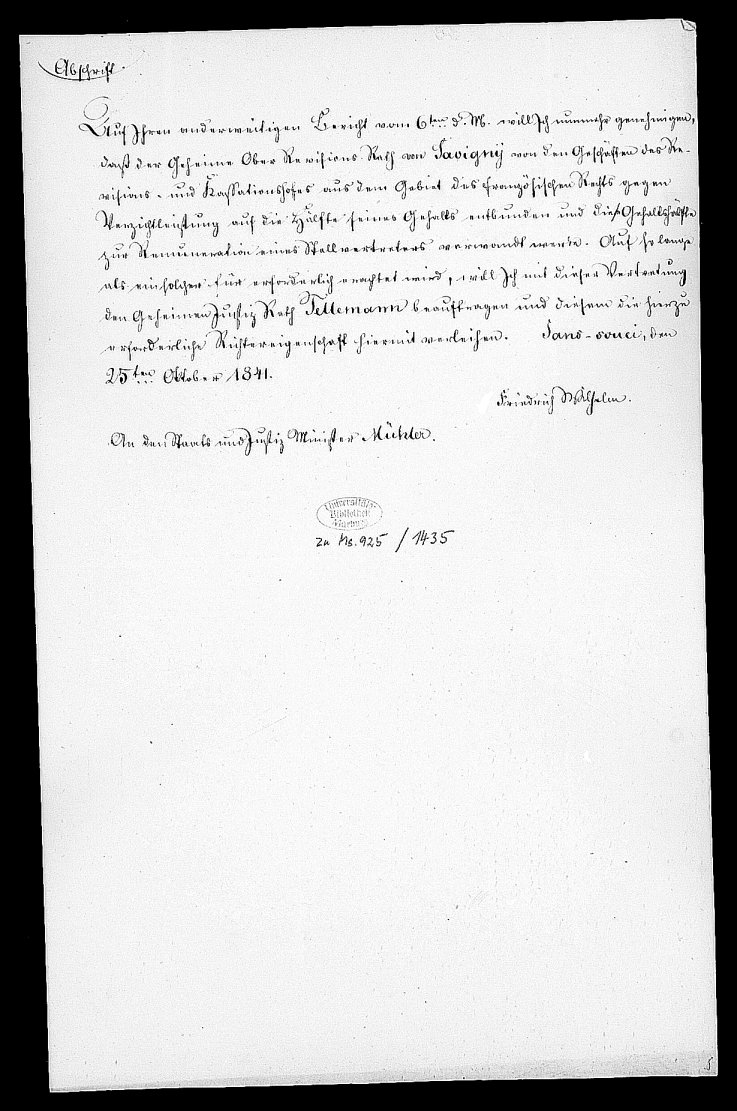 Abschrift.
Auf Ihren anderweitigen Bericht vom 6ten d. M. will Ich nunmehr genehmigen,
daß der Geheime Ober Revisions-Rath von Savigny von den Geschäften des Re-
visions- und Kassationshofes aus dem Gebiet des französischen Rechts gegen
Verzichtleistung auf die Hälfte seines Gehalts entbunden und diese Gehaltshälfte
zur Remuneration eines Stellvertreters verwandt werde. Auf so lange
als ein solcher für erforderlich erachtet wird, will Ich mit dieser Vertretung
den Geheimen Justiz Rath Tettemann beauftragen und diesem die hierzu
erforderliche Richtereigenschaft hiermit verleihen. Sans-souci, den
25ten Oktober 1841.
Friedrich Wilhelm.
An den Staats und Justiz Minister Mühler.
Universitäts-
Bibliothek
Marburg
zu Ms. 925 / 1435
5